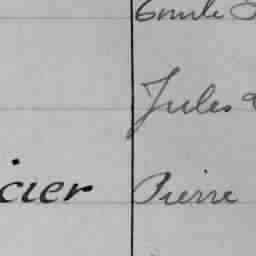 Emile
Jules
cier Pierre